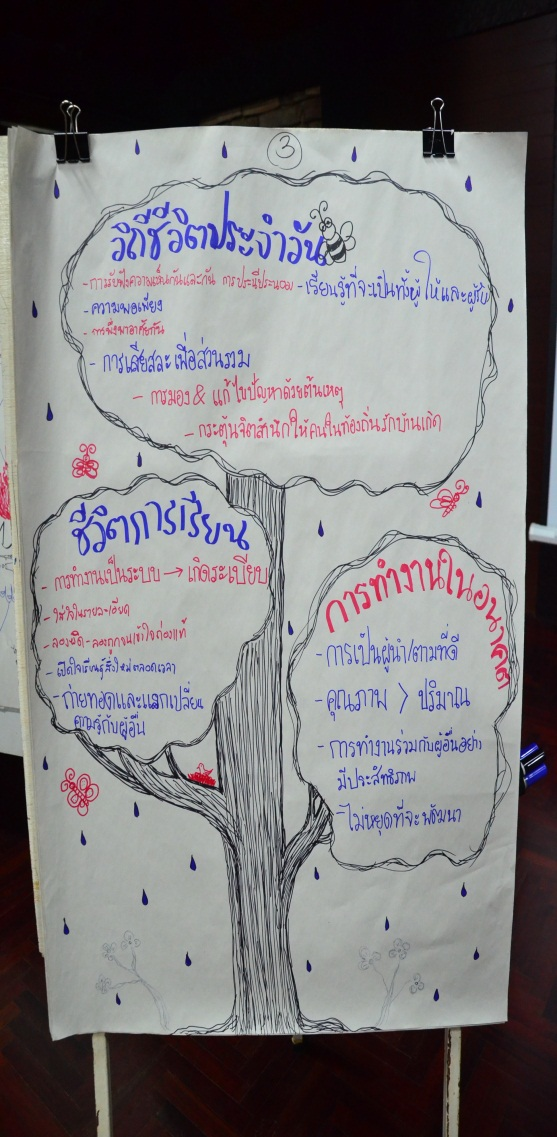 3
วิถีชีวิตประจำวัน
- การรับฟังความเห็นกันและกัน การประนีประนอม - เรียนรู้ที่จะเป็นทั้งผู้ให้และผู้รับ
- ความพอเพียง
- การพึ่งพาอาศัยกัน
- การเสียสละเพื่อส่วนรวม
- การมอง & แก้ไขปัญหาด้วยต้นเหตุ
- กระตุ้นจิตสำนึกให้คนในท้องถิ่นรักบ้านเกิด
ชีวิตการเรียน
- การทำงานเป็นระบบ → เกิดระเบียบ
- ใส่ใจในรายละเอียด
- ลองผิด - ลองถูกจนเข้าใจถ่องแท้
- เปิดใจเรียนรู้สิ่งใหม่ตลอดเวลา
- ถ่ายทอดและแลกเปลี่ยน
ความรู้กับผู้อื่น
การทำงานในอนาคต
- การเป็นผู้นำ/ตามที่ดี
- คุณภาพ > ปริมาณ
- การทำงานร่วมกับผู้อื่นอย่าง
มีประสิทธิภาพ
- ไม่หยุดที่จะพัฒนา